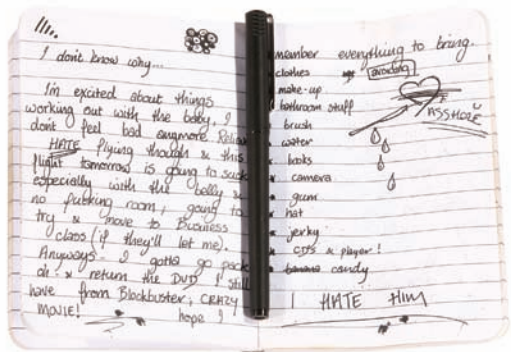 I dont know why...
I'm excited about things
working out with the baby, I
dont feel bad anymore
HATE flying though & this
flight tomorrow is going to suck
especially with the belly &
no fucking room, going to
try & move to Business
class (if they'll let me).
Anyways - I gotta go pack
oh & return the DVD I still
have from Blockbuster, CRAZY
MOVIE! hope I
member everything to bring.
clothes
avoiding
make-up
bathroom stuff
ASSHOLE
brush
water
books
camera
gum
hat
jerky
CDS & player!
banana candy
I HATE HIM